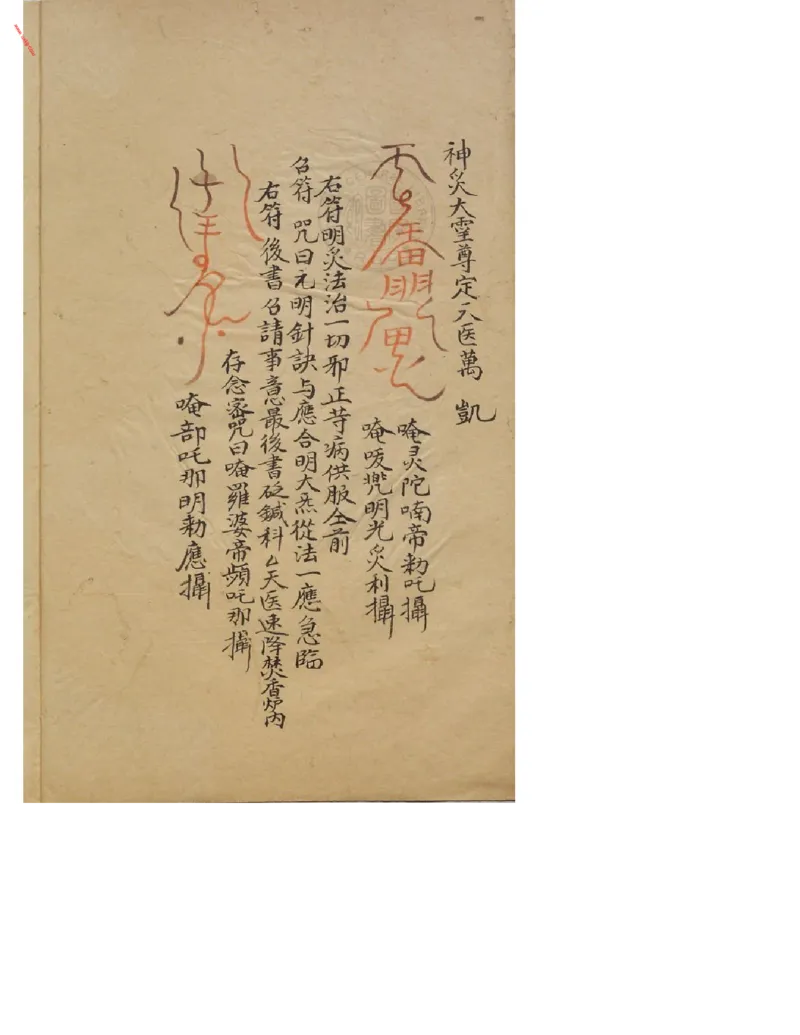 神炙大霊尊定天医萬 凱
唵灵陀喃帝勑吒攝
唵㗳兠明光炙利攝
右符明炙法治一切邪正䓁病供服仝前
召符 咒曰元明針訣与應合明大炁從法一應急臨
右符後書召請事意最後書砭鍼科厶天医速降焚香炉内
存念密咒曰唵羅婆帝頻吒那攝
唵部吒那明勑應攝